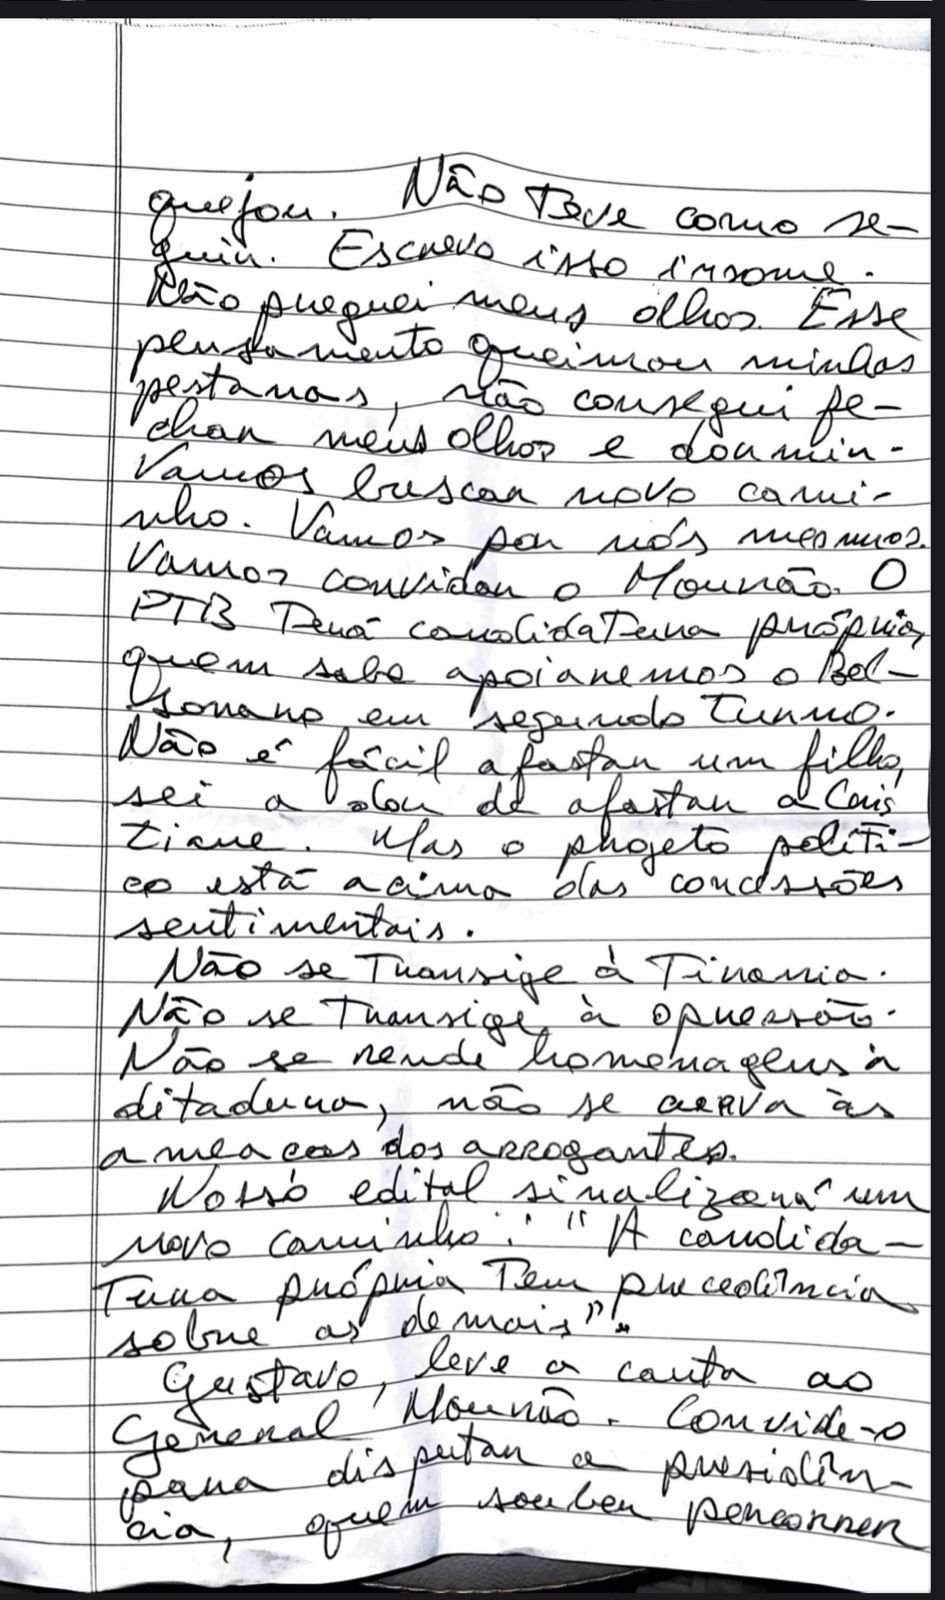 quejou. Não Teve como se-
guir. Escrevo isso insone.
Não preguei meus olhos. Esse
pensamento queimou minhas
pestanas, não consegui fe-
char meus olhos e dormir.
Vamos buscar novo cami-
nho. Vamos por nós mesmos.
Vamos convidar o Mourão. O
PTB Terá candidaTura própria,
quem sabe apoiaremos o Bol-
sonaro em segundo Turno.
Não é fácil afastar um filho,
sei a dor de afastar a Cris
Tiane. Mas o projeto políTi-
co está acima das concessões
sentimentais.
Não se Transige à Tirania.
Não se Transige à opressão.
Não se rende homenagens à
ditadura, não se curva às
ameaças dos arrogantes.
Nosso edital sinalizará um
novo caminho: "A candida-
Tura própria Tem precedência
sobre as demais".
Gustavo, leve a carta ao
General Mourão. Convide-o
para disputar a presidên-
cia, quem souber percorrer